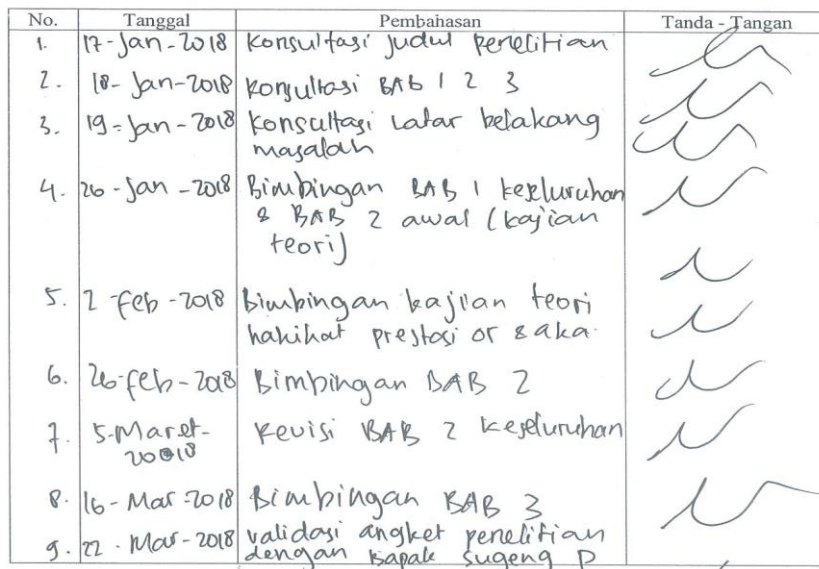 No. Tanggal Pembahasan Tanda - Tangan
1. 17-Jan-2018 Konsultasi judul penelitian
2. 18-Jan-2018 Konsultasi BAB 1 2 3
3. 19-Jan-2018 Konsultasi Latar belakang
masalah
4. 26-Jan-2018 Bimbingan BAB 1 keseluruhan
& BAB 2 awal (kajian
teori)
5. 2-Feb-2018 Bimbingan kajian teori
hakihat prestasi or & aka
6. 26-Feb-2018 Bimbingan BAB 2
7. 5-Maret-
2018 Revisi BAB 2 keseluruhan
8. 16-Mar-2018 Bimbingan BAB 3
9. 22-Mar-2018 validasi angket penelitian
dengan Bapak Sugeng P